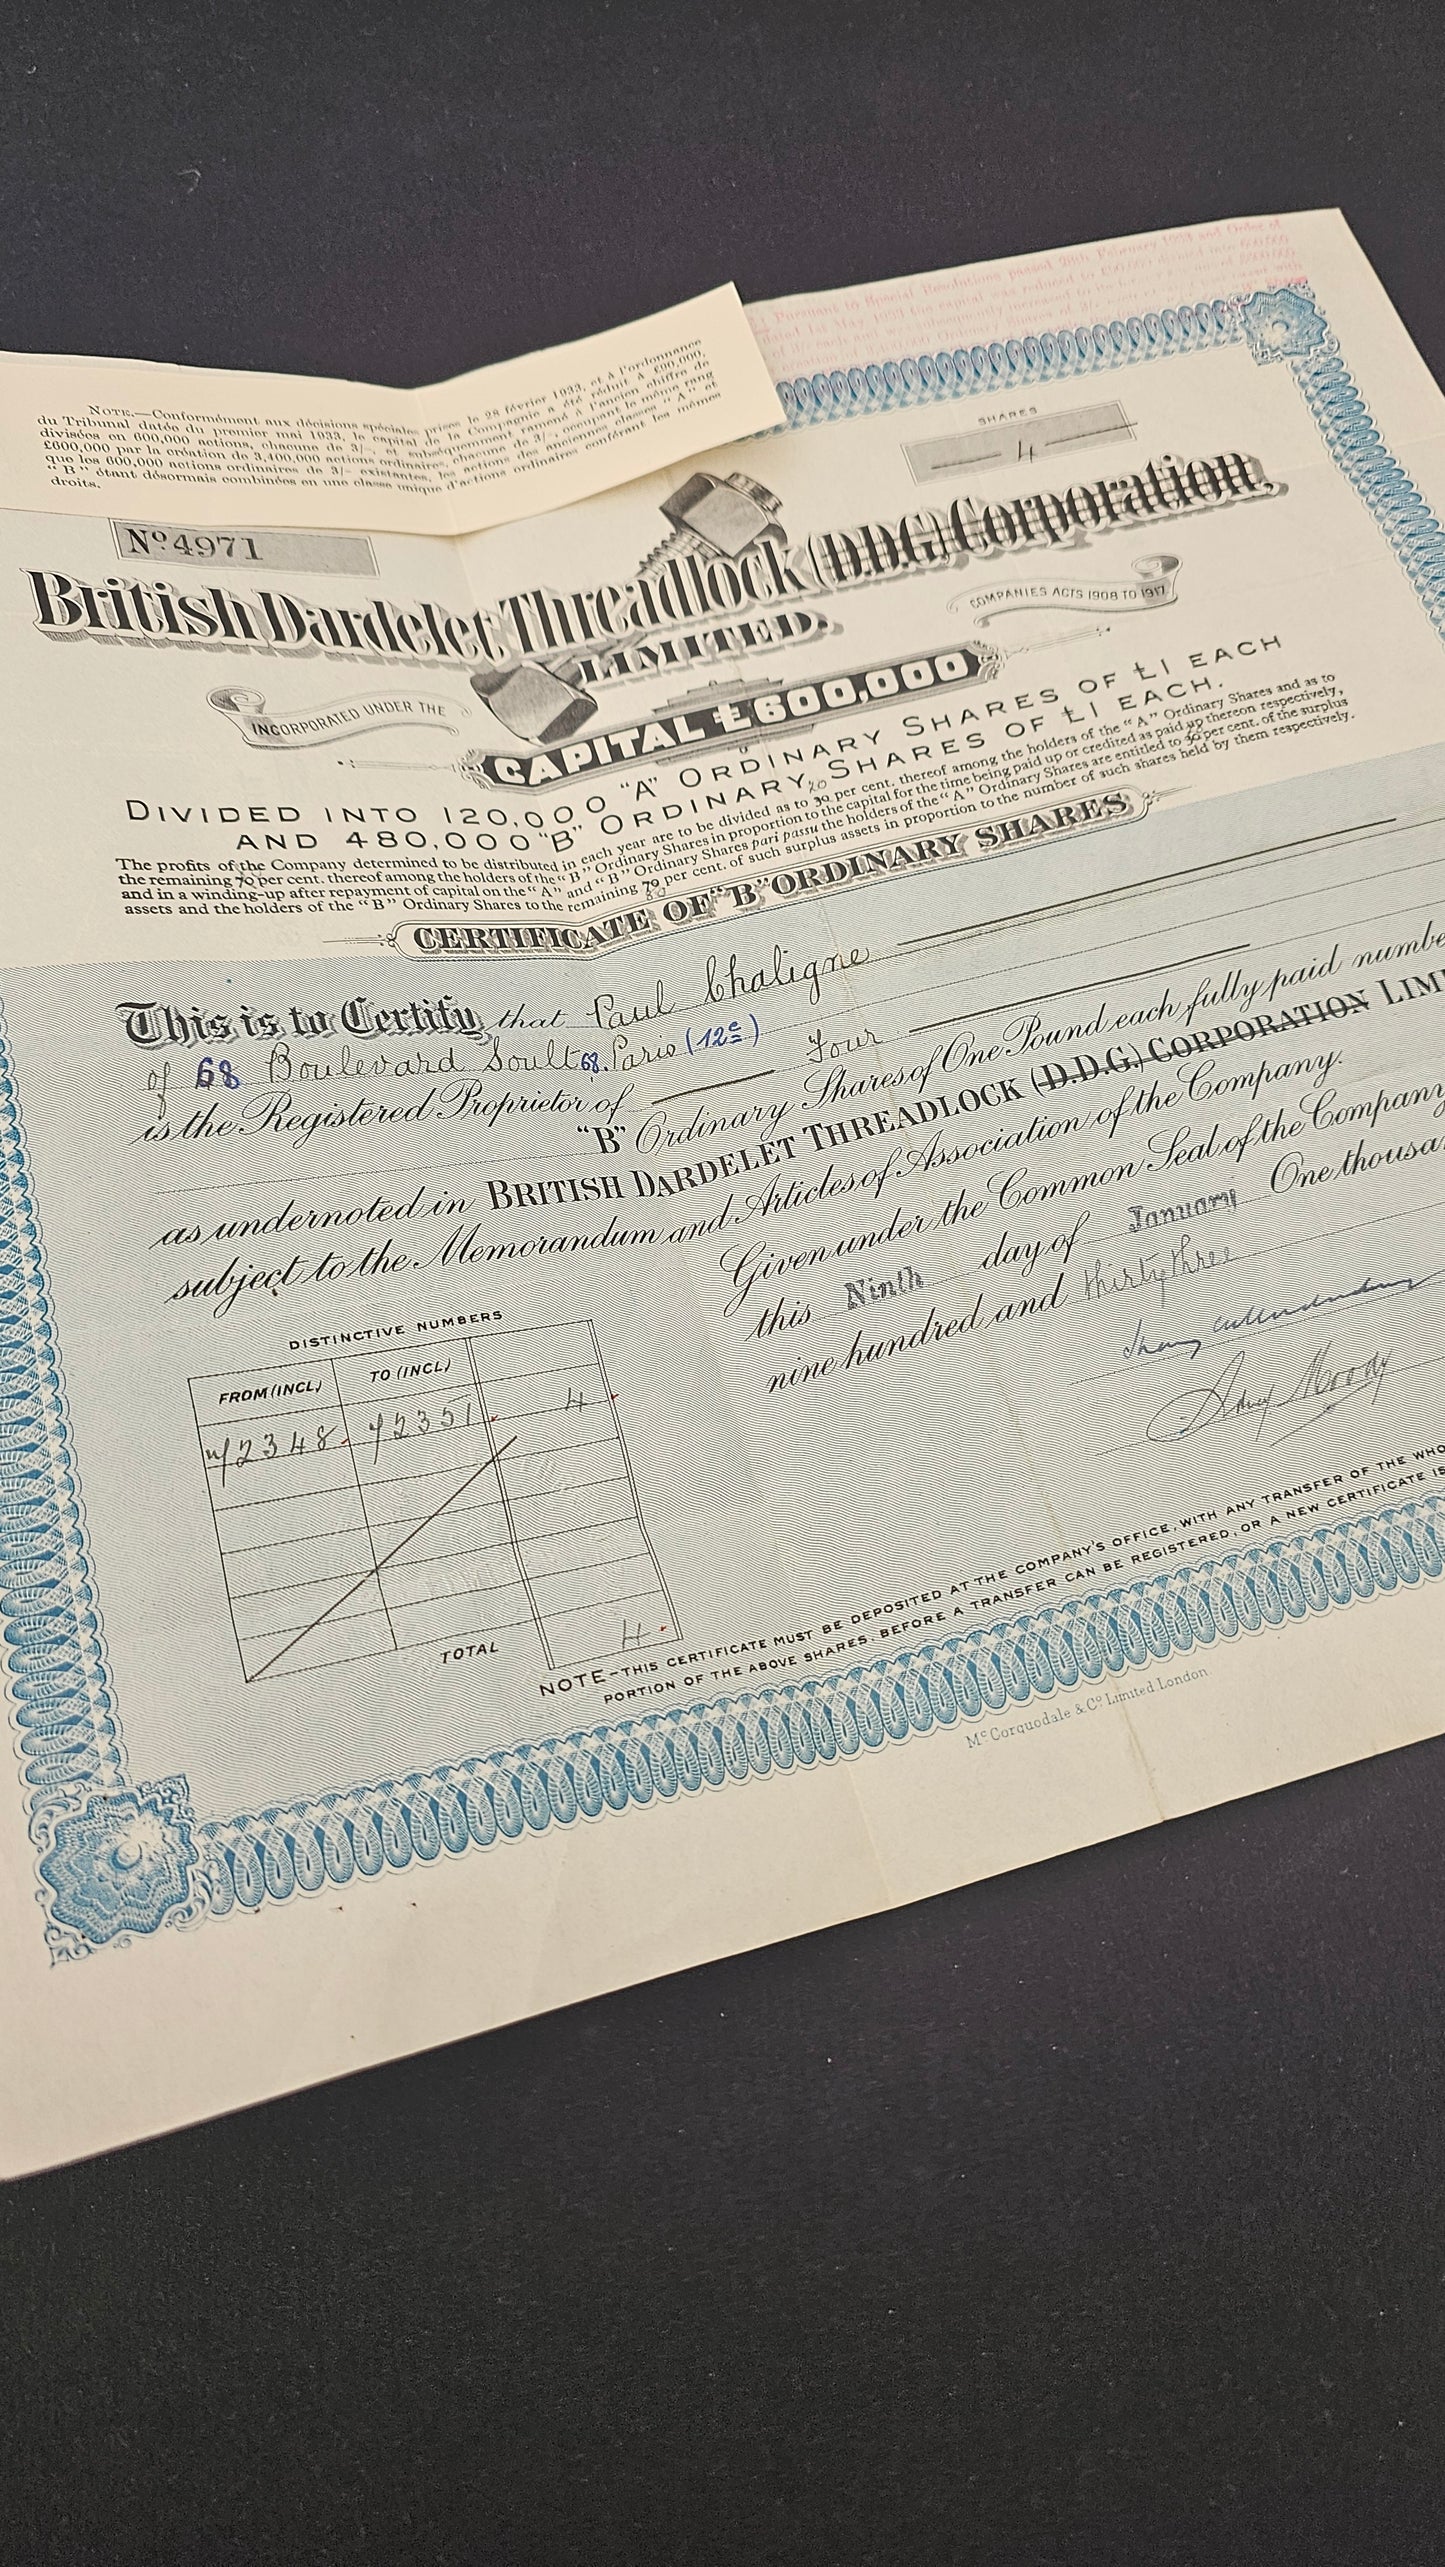 Pursuant to Special Resolutions passed 28th February 1933 and Order of
dated 1st May, 1933 the capital was reduced to £90,000 divided into 600,000
of 3/- each and was subsequently
NOTE.—Conformément aux décisions spéciales prises le 28 février 1933, et à l'ordonnance
du Tribunal datée du premier mai 1933, le capital de la Compagnie a été réduit à £90,000,
divisées en 600,000 actions, chacune de 3/-, et subséquemment ramené à l'ancien chiffre de
£600,000 par la création de 3,400,000 actions ordinaires, chacune de 3/-, occupant le même rang
que les 600,000 actions ordinaires de 3/- existantes, les actions des anciennes classes "A" et
"B" étant désormais combinées en une classe unique d'actions ordinaires conférant les mêmes
droits.
SHARES
4
Nº 4971
British Dardelet Threadlock (D.D.G.) Corporation,
LIMITED.
INCORPORATED UNDER THE
COMPANIES ACTS 1908 TO 1917
CAPITAL £600,000
DIVIDED INTO 120,000 "A" ORDINARY SHARES OF £1 EACH
AND 480,000 "B" ORDINARY SHARES OF £1 EACH.
The profits of the Company determined to be distributed in each year are to be divided as to 20 30 per cent. thereof among the holders of the "A" Ordinary Shares and as to
the remaining 70 per cent. thereof among the holders of the "B" Ordinary Shares in proportion to the capital for the time being paid up or credited as paid up thereon respectively,
and in a winding-up after repayment of capital on the "A" and "B" Ordinary Shares pari passu the holders of the "A" Ordinary Shares are entitled to 30 per cent. of the surplus
assets and the holders of the "B" Ordinary Shares to the remaining 70 80 per cent. of such surplus assets in proportion to the number of such shares held by them respectively.
CERTIFICATE OF "B" ORDINARY SHARES
This is to Certify that Paul Chaligne
of 68 Boulevard Soult 68. Paris (12e)
is the Registered Proprietor of Four
"B" Ordinary Shares of One Pound each fully paid numbe
as undernoted in BRITISH DARDELET THREADLOCK (D.D.G.) CORPORATION LIM
subject to the Memorandum and Articles of Association of the Company.
Given under the Common Seal of the Company
this Ninth day of January One thousa
nine hundred and thirty three
Sidney Moody
DISTINCTIVE NUMBERS
FROM (INCL) TO (INCL)
72348 72351 4
TOTAL 4
NOTE-THIS CERTIFICATE MUST BE DEPOSITED AT THE COMPANY'S OFFICE, WITH ANY TRANSFER OF THE WHO
PORTION OF THE ABOVE SHARES, BEFORE A TRANSFER CAN BE REGISTERED, OR A NEW CERTIFICATE IS
McCorquodale & Co Limited London